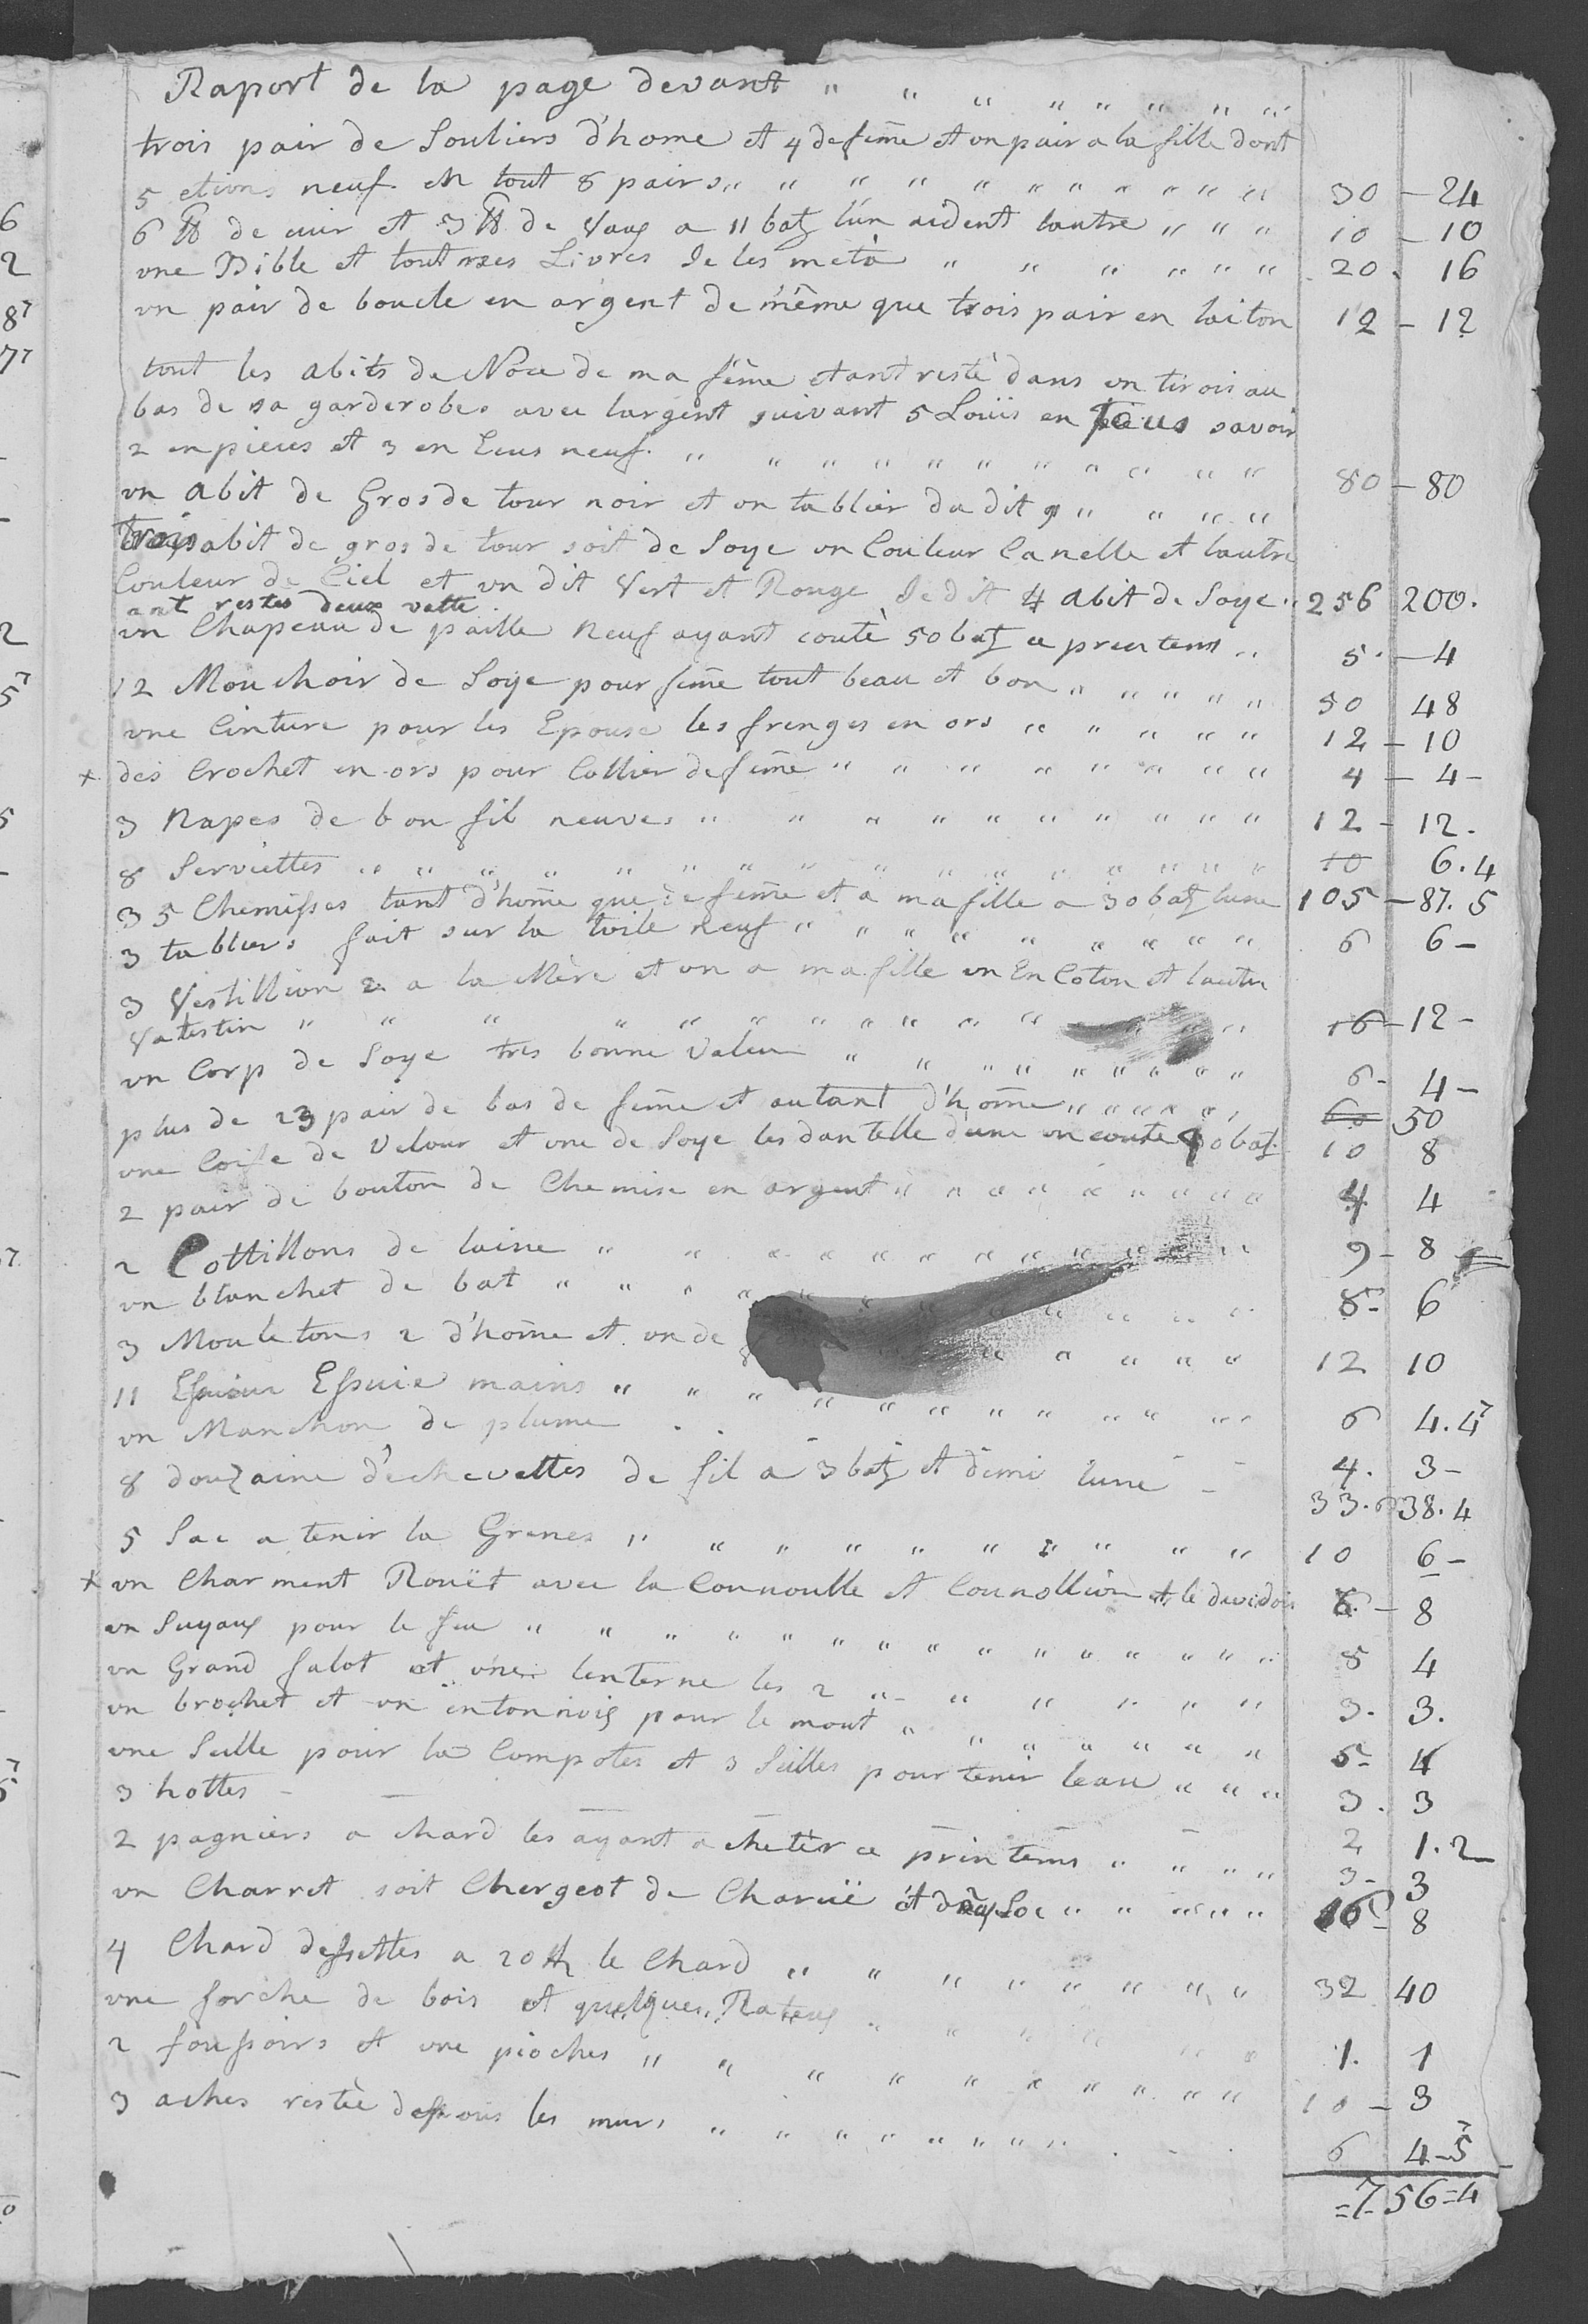 Raport de la page devant " " " " " " " "
trois pair de Souliers d'home et 4 de feme et un pair a la fille dont
5 etions neuf. en tout 8 pairs " " " " " " " " " " " 30 - 24
6 ℔ de cuir et 3 ℔ de Vaux a 11 batz l'un aident lautre " " " 10 - 10
une Bible et tout mes Livres Je les mets à " " " " " " 20. 16
un pair de boucle en argent de même que trois pair en laiton 12 - 12
tout les abits de Noce de ma fême etant resté dans un tiroir au
bas de sa garderobes avec largent suivant 5 Loüis en savoir
2 en pieces et 3 en Ecus neuf. " " " " " " " " " " " 80 - 80
un abit de Gros de tour noir et un tablier du dit " " " "
Trois abit de gros de tour soit de Soye un Couleur Canelle et lautre
Couleur de Ciel et un dit Vert et Rouge Je dit 4 abit de Soye. " 256 200.
ant restes deux vette
un Chapeau de paille neuf ayant coutè 50 batz ce preutems " 5. - 4
12 Mouchoir de Soye pour feme tout beau et bon " " " " " 50 48
une Cinture pour les Epouse les frenges en ors " " " " " 12 - 10
* des Crochet en ors pour Collier de feme " " " " " " " " 4 - 4 -
3 Napes de bon fil neuves " " " " " " " " " " 12 - 12.
8 Serviettes " " " " " " " " " " " " " 10 6.4
35 Chemises tant d'home que de feme et a ma fille a 30 batz lune 105 - 87.5
3 tabliers fait sur la toile neuf " " " " " " " " " 6 6 -
3 Vestillion 2 a la Mère et un a ma fille un En Coton et lautre
Vatestin " " " " " " " " " " " " 16 - 12 -
un Corp de Soye tres bonne Valeur " " " " " " " " " 6 - 4 -
plus de 23 pair de bas de feme et autant d'home " " " " " " 60 50
une Coife de Velour et une de Soye les dantelle dune un coute batz 10 8
2 pair de bouton de Chemise en argent " " " " " " " " " 4 4
2 Cottillons de laine " " " " " " " " " " " 9 - 8
un blanchet de bat " " " " " " " " " " " 8 - 6
3 Mouletons 2 d'home et un de " " " " " 12 10
11 Essuie mains " " " " " " " " " " " 6 4.4
un Manchon de plume . . - - 4. 3 -
8 douzaine d'echevettes de fil a 3 batz et demi lune - 33.6 38.4
5 Sac a tenir la Grenes " " " " " " " " " " 10 6 -
* un Charment Rouët avec la Connoulle et Counollion et le devidoir 8. - 8
un Suyaux pour le feu " " " " " " " " " " " " " 8 4
un Grand falot et une lenterne les 2 " " " " " " 3. 3.
un brochet et un entonnoix pour le mout " " " " " " " 5 - 4
une Seille pour la Compotes et 3 Seilles pour tenir leau " " " 3. 3
3 hottes - - - - - - 2 1.2
2 pagniers a chard les ayant acheter ce printems " " " " 3 - 3
un Charret soit Chergeot de Charuë et Soc " " " " " " 16 - 8
4 Chard desettes a 20 ℔ le Chard " " " " " " " " 32 40
une forche de bois et quelques Rateux " " " " " " 1. 1
2 foussoirs et une pioches " " " " " " " " " " 10 - 3
3 aches restée dessous les murs " " " " " " " " . - . 6 4 - 5
= 756 = 4